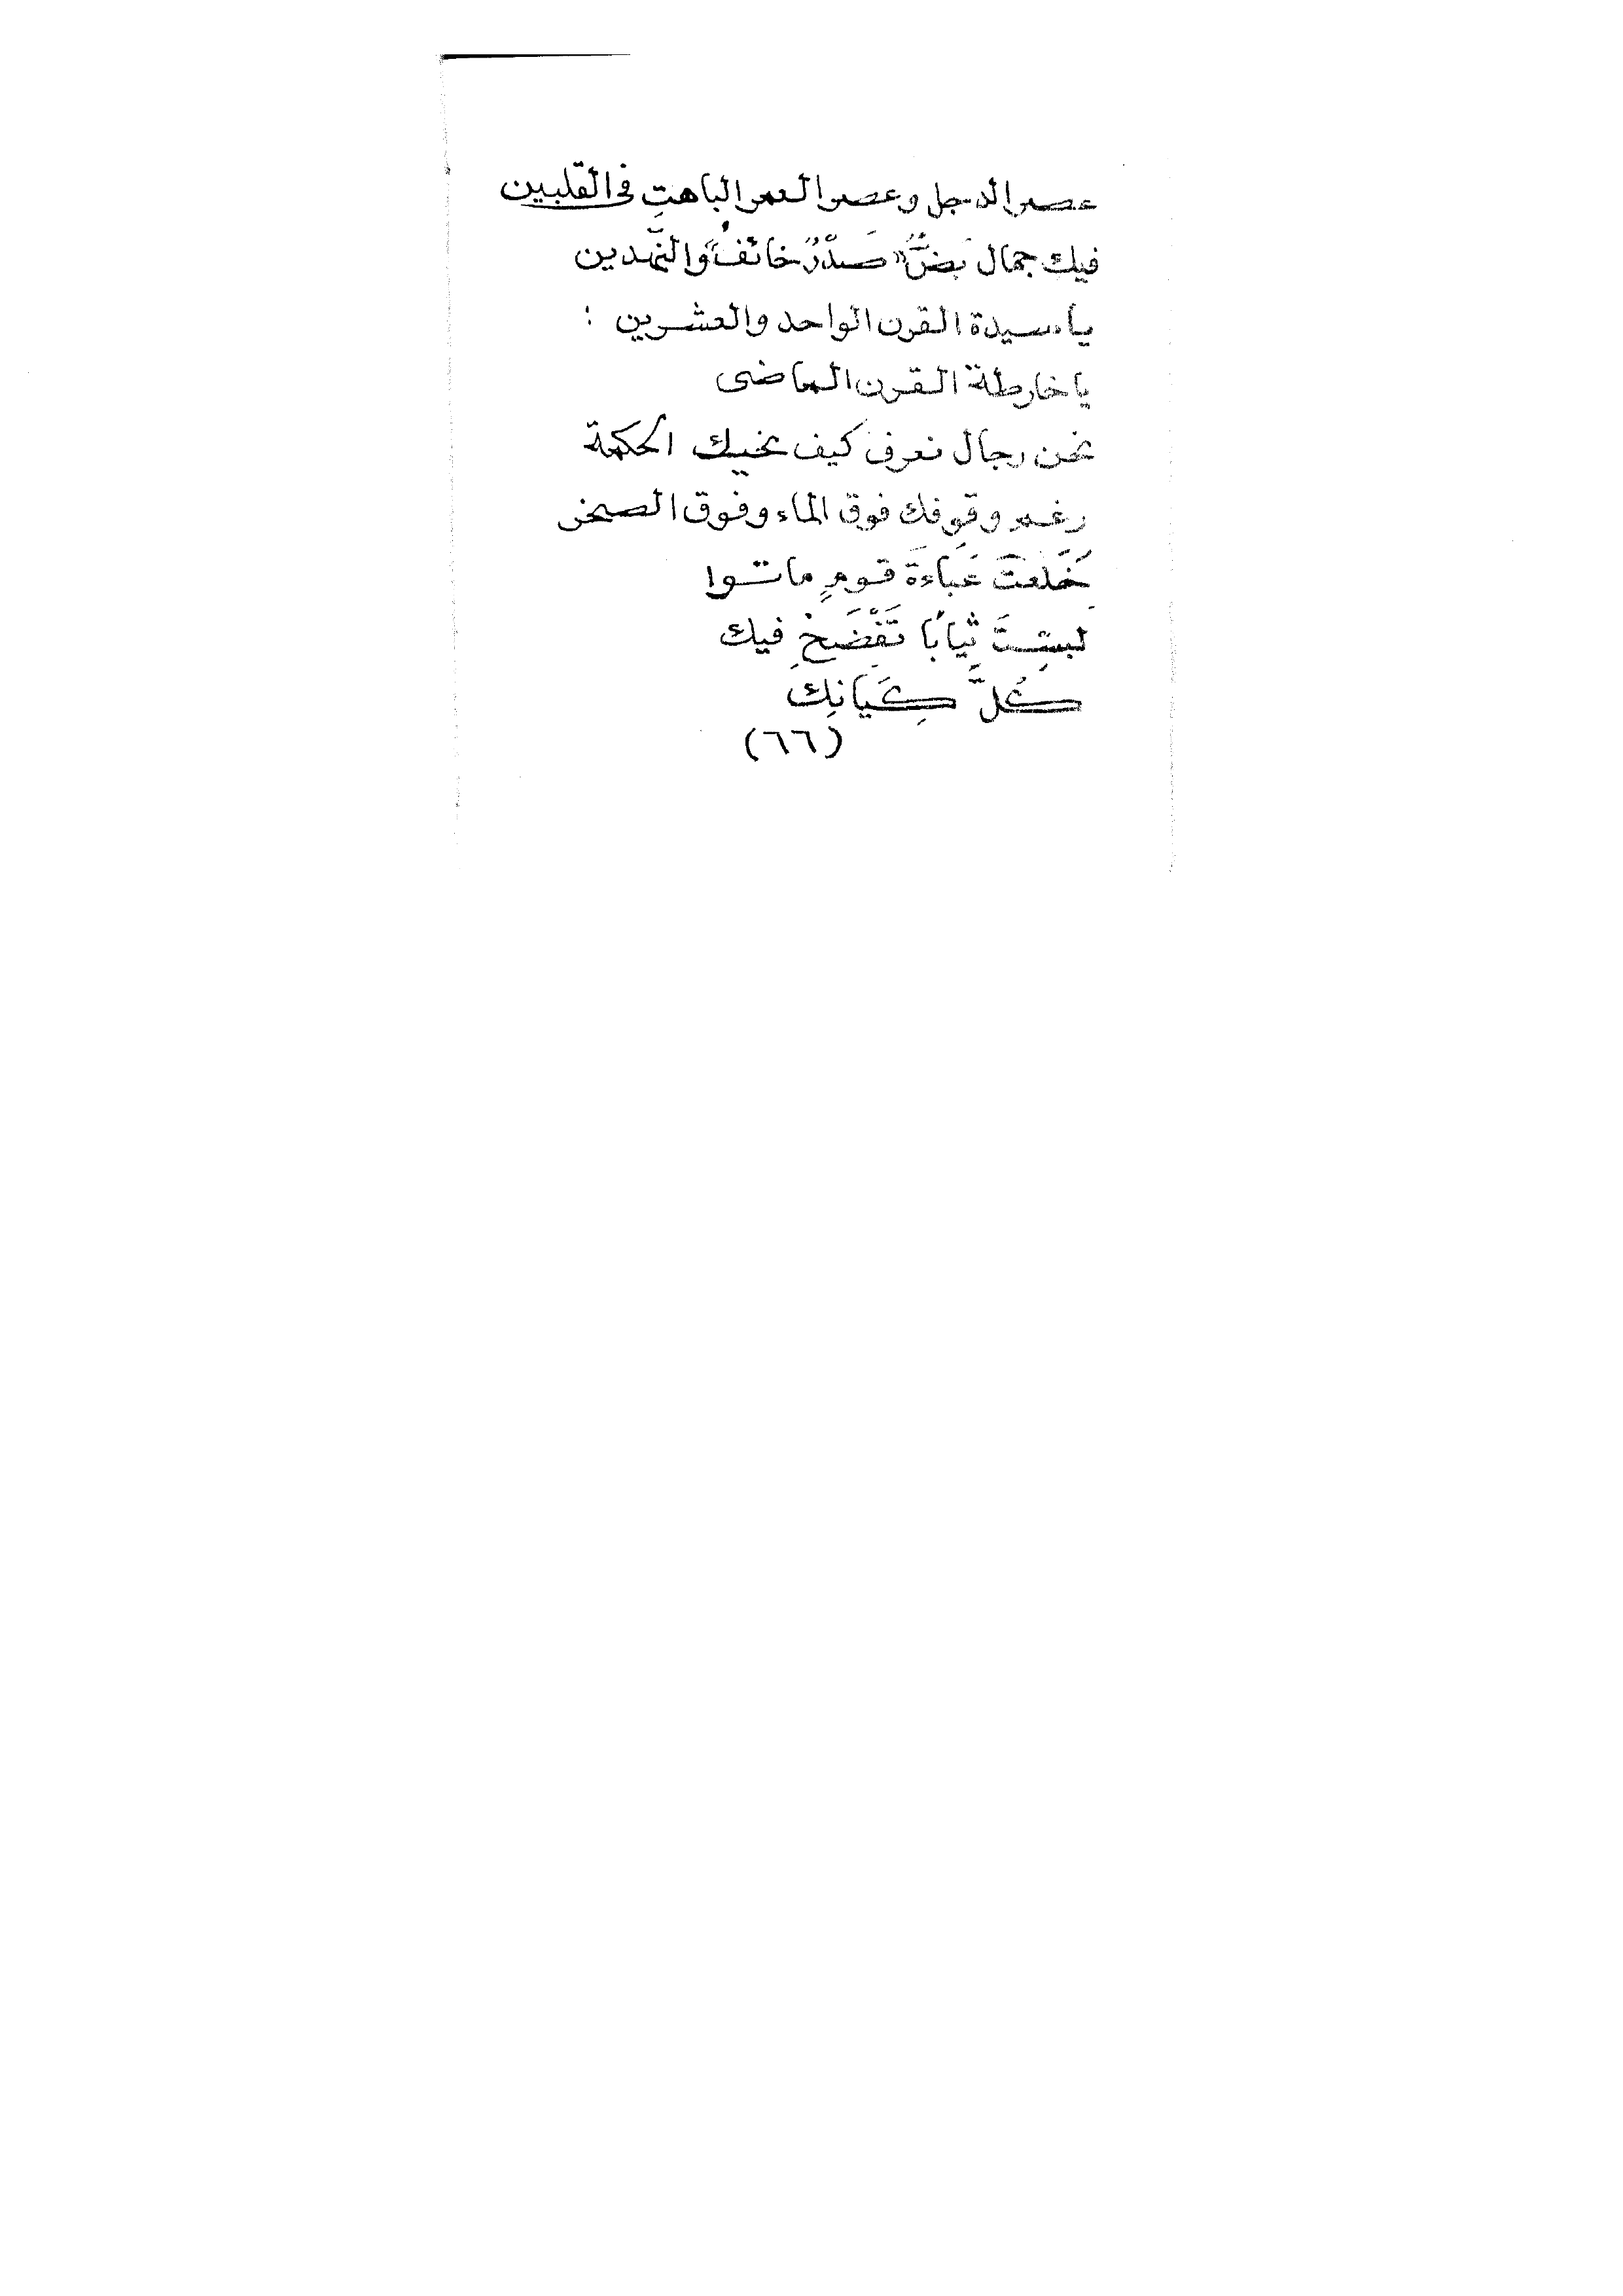 عصر الدجل وعصر العمر الباهتِ فى القلبين
فيك جمال بَضٌّ «صَدْرٌ خائفُ» والنَّهدين
يا سيدة القرن الواحد والعشرين :
يا خارطة القرن الماضى
نحن رجال نعرف كيف نحيك الحكمة
رغم وقوفك فوق الماء وفوق الصخر
خَلَعتَ عَبَاءَةَ قومٍ ماتوا
لَبستَ ثِيابًا تَفْضَحُ فيك
كُلَّ كِيَانِكَ
(٦٦)